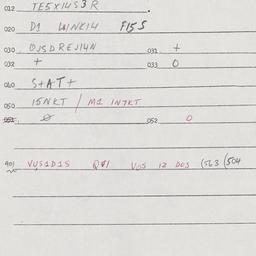 012 TE5X14S3R.
020 D1 WINK14 F15S
030 OJSDREJ14N 031 +
032 + 033 O
040 S+AT+
050 15NKT / M1 IN7KT
051 Ø 052 O
901 VUS1D1S Q#1 VUS 12 DOS (563 (504